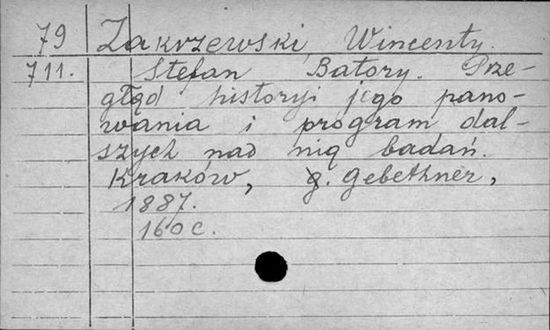 79 Zakrzewski, Wincenty.
711. Stefan Batory. Prze-
gląd historyi jego pano-
wania i program dal-
szych nad nią badań.
Kraków, g. Gebethner,
1887.
160 c.